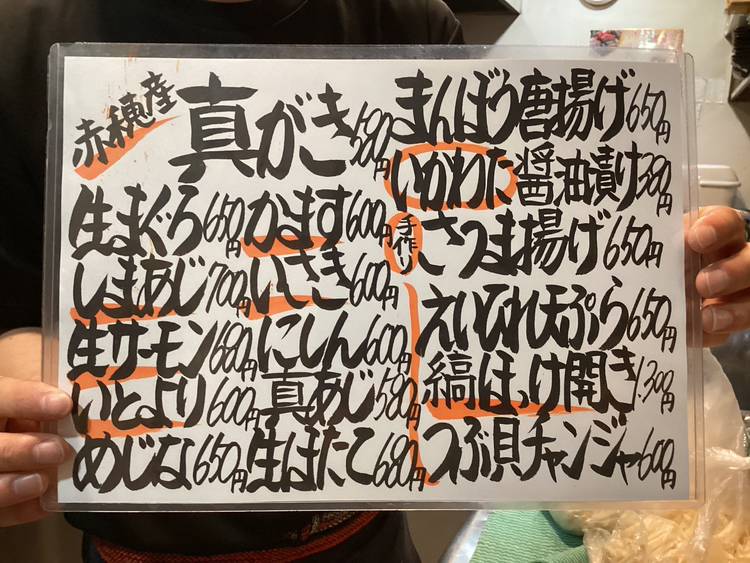 赤穂産 真がき 580円
生まぐろ 650円 かます 600円
しまあじ 700円 いさき 600円
生サーモン 680円 にしん 600円
いとより 600円 真あじ 580円
めじな 650円 生ほたて 680円
まんぼう唐揚げ 650円
いかわた醤油漬け 380円
手作り さつま揚げ 650円
えいひれ天ぷら 650円
縞ほっけ開き 1,300円
つぶ貝チャンジャー 600円